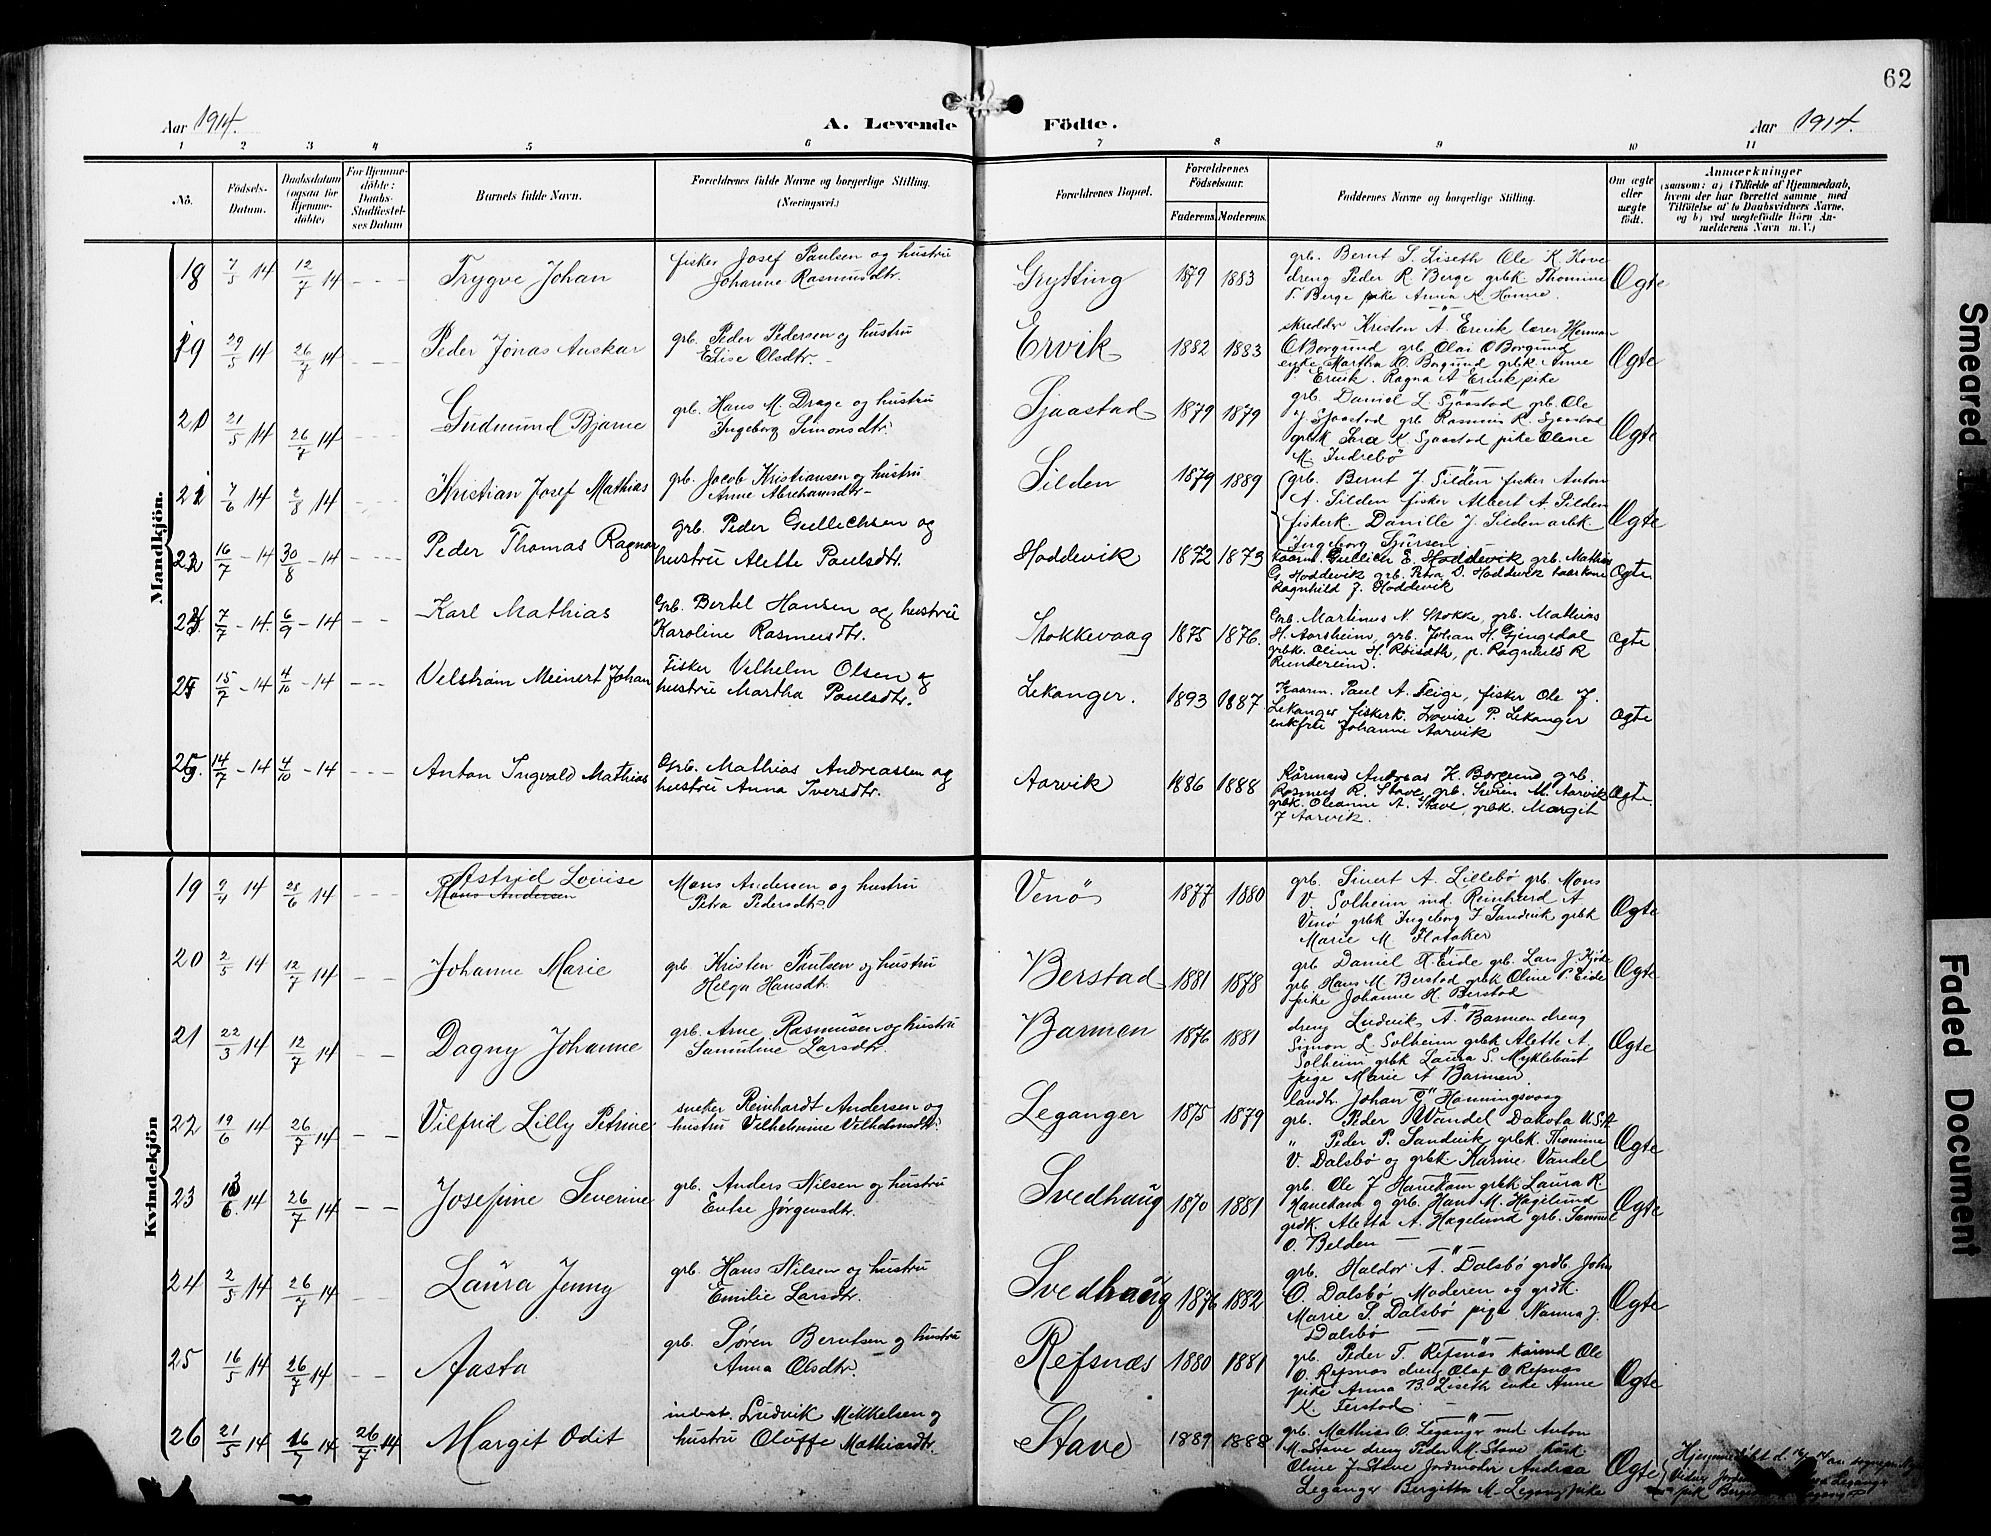 62
Aar 1914.
A. Levende Födte.
Aar 1914.
1 2 3 4 5 6 7 8 9 10 11
No. Födsels-Datum. Daabsdatum (ogsaa for Hjemmedöbte) For Hjemmedöbte: Daabs-Stadfæstelses Datum Barnets fulde Navn. Forældrenes fulde Navne og borgerlige Stilling. (Næringsvei.) Forældrenes Bopæl. Forældrenes Födselsaar. Faderens. Moderens. Faddernes Navne og borgerlige Stilling. Om ægte eller uægte födt. Anmærkninger
(saasom: a) i Tilfælde af Hjemmedaab, hvem der har forrettet samme med Tilföielse af to Daabsvidners Navne, og b) ved uægtefödte Börn Anmelderens Navn m. V.)
Mandkjön.
18 7/5 14 12/7 14 - - - Trygve Johan fisker Josef Paulsen og hustru Johanne Rasmusdtr. Grytting 1879 1883 grb. Bernt S. Liseth Ole K. Hove dreng Peder R Berge grbk Thomine T. Berge pike Anna K Hamre. Ægte
19 29/5 14 26/7 14 - - - Peder Jonas Anskar grb. Peder Pedersen og hustru Elise Olsdtr. Ervik 1882 1883 skredder Kristen A. Ervik lærer Herman O Borgund grb Olai O Borgund enke Martha O. Borgund grbk Anne P. Ervik. Ragna A Ervik pike Ægte
20 21/5 14 26/7 14 - - - Gudmund Bjarne grb. Hans M Drage og hustru Ingeborg Simonsdtr. Sjaastad 1879 1879 grb. Daniel L Sjaastad grb. Ole J Sjaastad grb Rasmus R. Sjaastad grbk Sara K Sjaastad pike Oline M. Indrebö Ægte
21 7/6 14 2/8 14 - - - Kristian Josef Mathias grb. Jacob Kristiansen og hustru Anne Abrahamsdtr. Silden 1879 1889 grb. Bernt J. Silden fisker Anton A. Silden fisker Albert A. Silden fiskerk. Danille J. Silden arbk Ingeborg Sjursen Ægte
22 16/7 - 14 30/8 - 14 - - - Peder Thomas Ragnar Grb. Peder Gullechsen og hustru Alette Paulsdtr. Hoddevik 1872 1873 kaarm. Gullich E. Hoddevik grb. Mathias G. Hoddevik grb. Petra D. Hoddevik kaarkone Ragnhild J. Hoddevik Ægte.
23 7/7 - 14. 6/9 - 14 - - Karl Mathias Grb. Bertel Hansen og hustru Karoline Rasmusdtr. Stokkevaag 1875 1876. Grb. Martinus N. Stokke, grb. Mathias H. Aarsheim, grb. Johan H. Gjengedal grbk. Oline H. Röisæth, p. Ragnhild R Runderheim. Ægte
24 15/7 - 14 4/10 - 14 - - - Velstrøm Meinert Johan Fisker Vilhelm Olsen og hustru Martha Paulsdtr. Lekanger. 1893 1887. Kaarm. Paul A. Feige, fisker Ole J. Lekanger fiskerk. Lovise P. Lekanger enkfru Johanne Aarvik Ægte
25 14/7 - 14 4/10 - 14 - - - Anton Ingvald Mathias Grb. Mathias Andreassen og hustru Anna Iversdtr. Aarvik 1886 1888 Kårmand Andreas K. Borgund grb. Rasmus R. Stave, grb. Søren M. Aarvik grbk. Oleanne A. Stave, grbk. Margit J Aarvik. Ægte.
Kvindekjön
19 9/4 14 28/6 14 - - Astrid Lovise Mons Andersen Mons Andersen og hustru Petra Pedersdtr. Venö 1877 1880 grb. Sivert A. Lillebö grb. Mons V. Solheim ind Reinhard A Venö grbk Ingeborg J Sandvik grbk Marie M Flotaker Ægte
20 2/5 14 12/7 14 - - Johanne Marie grb Kristen Paulsen og hustru Helga Hansdtr. Berstad 1881 1878 grb Daniel H. Eide grb. Lars J. Kjöde grb. Hans M Berstad grbk Oline P Eide pike Johanne H. Berstad Ægte
21 22/3 14 12/7 14 - - Dagny Johanne grb. Arne Rasmusen og hustru Samuline Larsdtr. Barmen 1876 1881 dreng Ludvik A Barmen dreng Simon L Solheim grbk Alette A. Solheim grbk Laura S. Myklebust pige Marie A Barmen. Ægte
22 19/6 14 26/7 14 - - Vilfrid Lilly Petrine snekker Reinhardt Andersen og hustru Vilhelmine Vilhelmsdtr. Leganger 1875 1879 landhr. Johan G Honningsvaag grb. Peder Wandel Dakota U.S.A. " Peder P. Sandvik grbk. Thomine V. Dalsbö og grbk. Karine Vandel Ægte
23 13/6. 14 26/7 14 - - Josefine Severine grb. Anders Nilsen og hustru Entse Jørgensdtr. Svedhaug 1870 1881 grb. Ole J Hanekam grbk Laura R Hanekam og grb. Hans M. Hagelund grdk. Aletta A. Hagelund grb. Samuel O. Belden Ægte
24 2/5 14 26/7 14 - - Laura Jenny grb. Hans Nilsen og hustru Emilie Larsdtr. Svedhaug 1876 1882 grb. Haldor A. Dalsbö grdb. John O. Dalsbö Moderen og grdk. Marie S. Dalsbö pige Nanna J. Dalsbö Ægte
25 16/5 14 26/7 14 - - Aasta grb. Søren Berntsen og hustru Anna Olsdtr. Refsnæs 1880 1881 grb. Peder T. Refsnæs kårmd Ole O. Refsnæs dreng Olaf O Refsnæs pike Anna B. Liseth enke Anne K. Ferstad Ægte
26 21/5 14 16/7 14 26/7 14 Margit Odit inderst. Ludvik Mikkelsen og hustru Oluffe Mathiasdtr. Stave 1889 1888 grb. Mathias O. Leganger ind Anton M. Stave dreng Peder M. Stave kårk Oline J Stave Jordmoder Andrea Leganger Bergitha M Legang pike Ægte Hjemmedöbt d.
Smeared
Faded Document